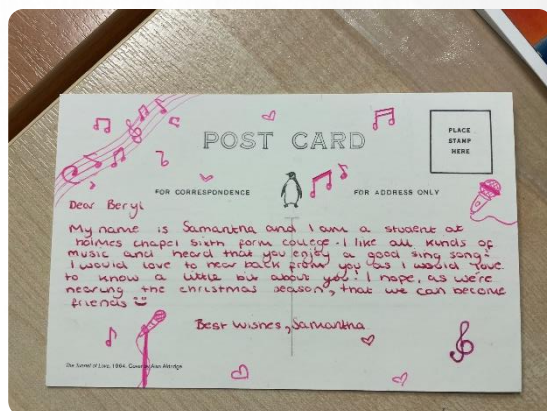 POST CARD
PLACE
STAMP
HERE
FOR CORRESPONDENCE
FOR ADDRESS ONLY
Dear Beryl
My name is Samantha and I am a student at
holmes chapel sixth form college. I like all kinds of
music and heard that you enjoy a good sing song!
I would love to hear back from you as I would love
to know a little bit about you! I hope, as we're
nearing the christmas season, that we can become
friends
Best wishes, Samantha
1964. Cover by Alan Aldridge